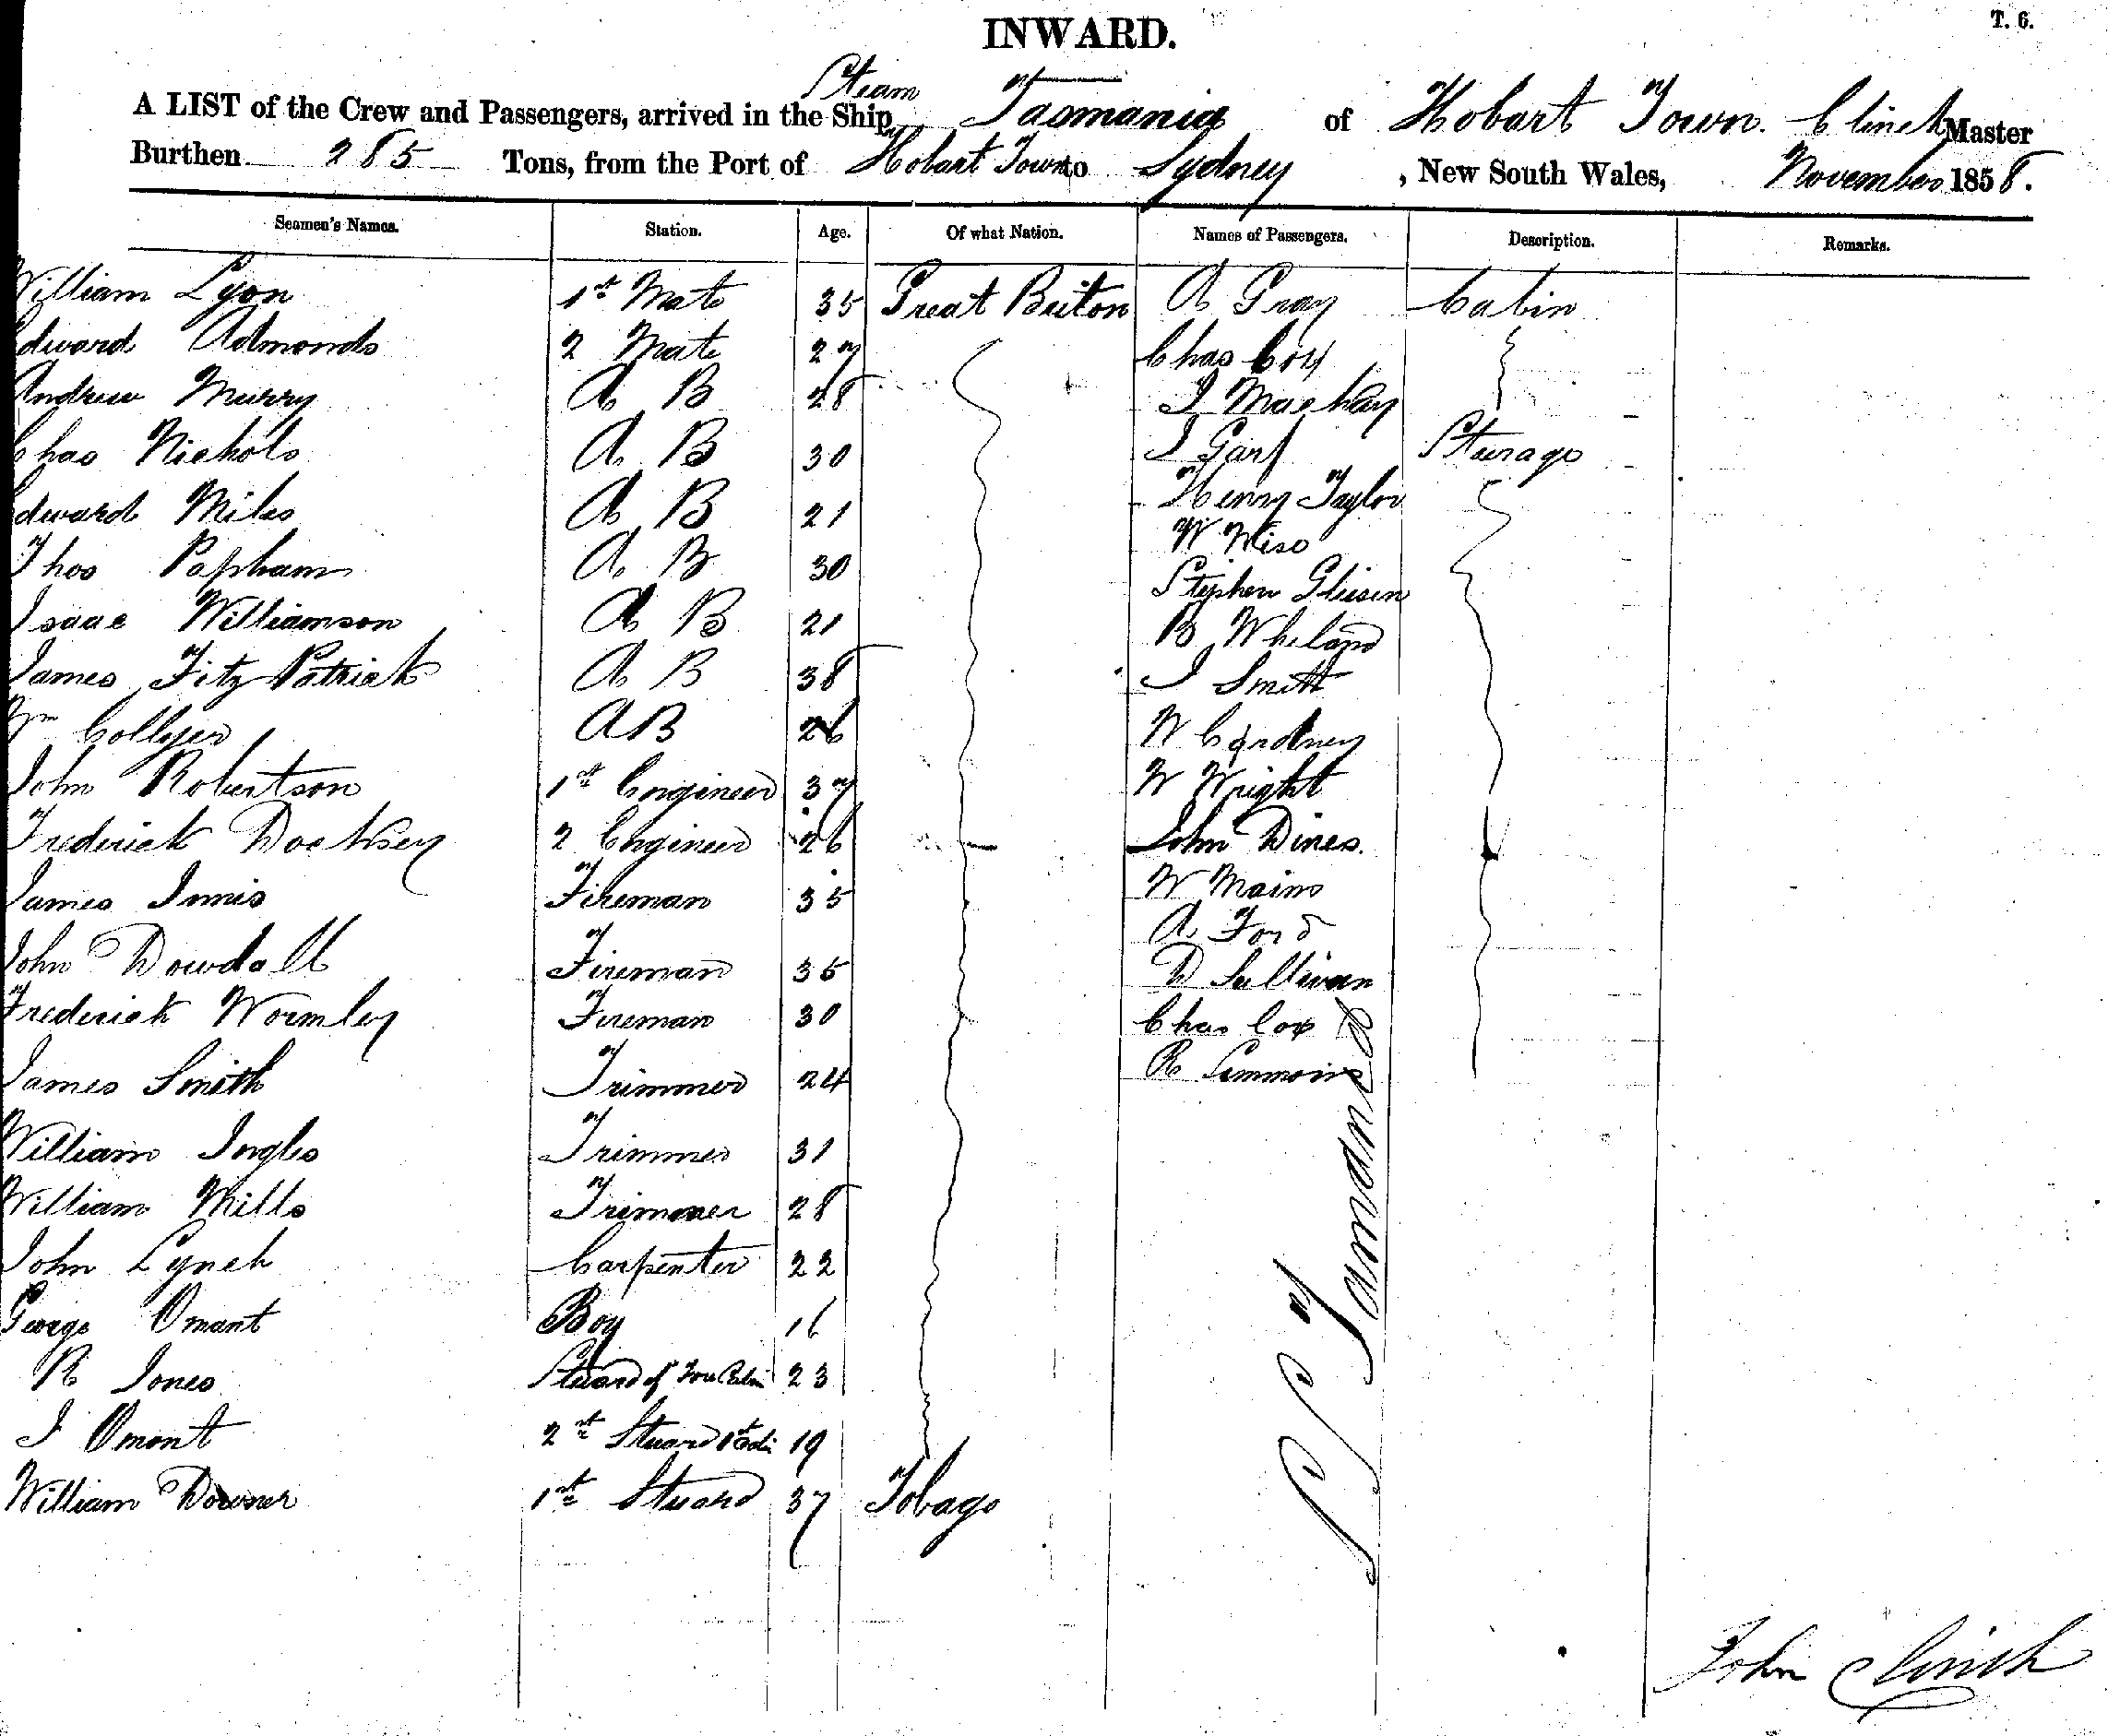 INWARD.
T. 6.
Steam
A LIST of the Crew and Passengers, arrived in the Ship Tasmania of Hobart Town. Clinch Master
Burthen 285 Tons, from the Port of Hobart Town to Sydney, New South Wales, November 1858.
Seamen's Names. Station. Age. Of what Nation. Names of Passengers. Description. Remarks.
William Lyon 1st Mate 35 Great Briton A Gray Cabin
Edward Admonds 2 Mate 27 Chas Cox
Andrew Murry A B 28 J Mackay
Chas Nichols A B 30 J Sturage
Edward Miles A B 21 Henry Taylor
Thos Papham A B 30 W Wise
Isaac Williamson A B 21 Stephen Gleisen
James Fitz Patrick A B 38 B Wheland
Wm Collyer A B 26 J Smith
John Robertson 1st Engineer 37 W Cardney
Frederick Docksey 2 Engineer 26 W Wright
James Innis Fireman 35 John Dines.
John Dowdall Fireman 35 W Mains
Frederick Wormley Fireman 30 A Ford
James Smith Trimmer 24 D Sullivan
William Ingles Trimmer 31 Chas Cox
William Mills Trimmer 28 R Simmons
John Lynch Carpenter 22
George Omant Boy 16
R Jones Stuard of Fore Cabin 23
J Omont 2nd Stuard 19
William Downer 1st Stuard 37 Tobago
S S Tasmania
John Clinch